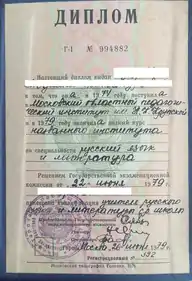 ДИПЛОМ
Г-I № 994882
Настоящий диплом выдан
в том, что она в 1974 году поступила
Московский областной педагоги-
ческий институт им. Н.К. Крупской
и в 1979 году окончила полный курс
названного института
по специальности русский язык
и литература
Решением Государственной экзаменационной
комиссии от 22 июня 1979 г.
присвоена квалификация учителя русского
языка и литературы ср. школы
Москва, 1979 г.
Регистрационный № 532